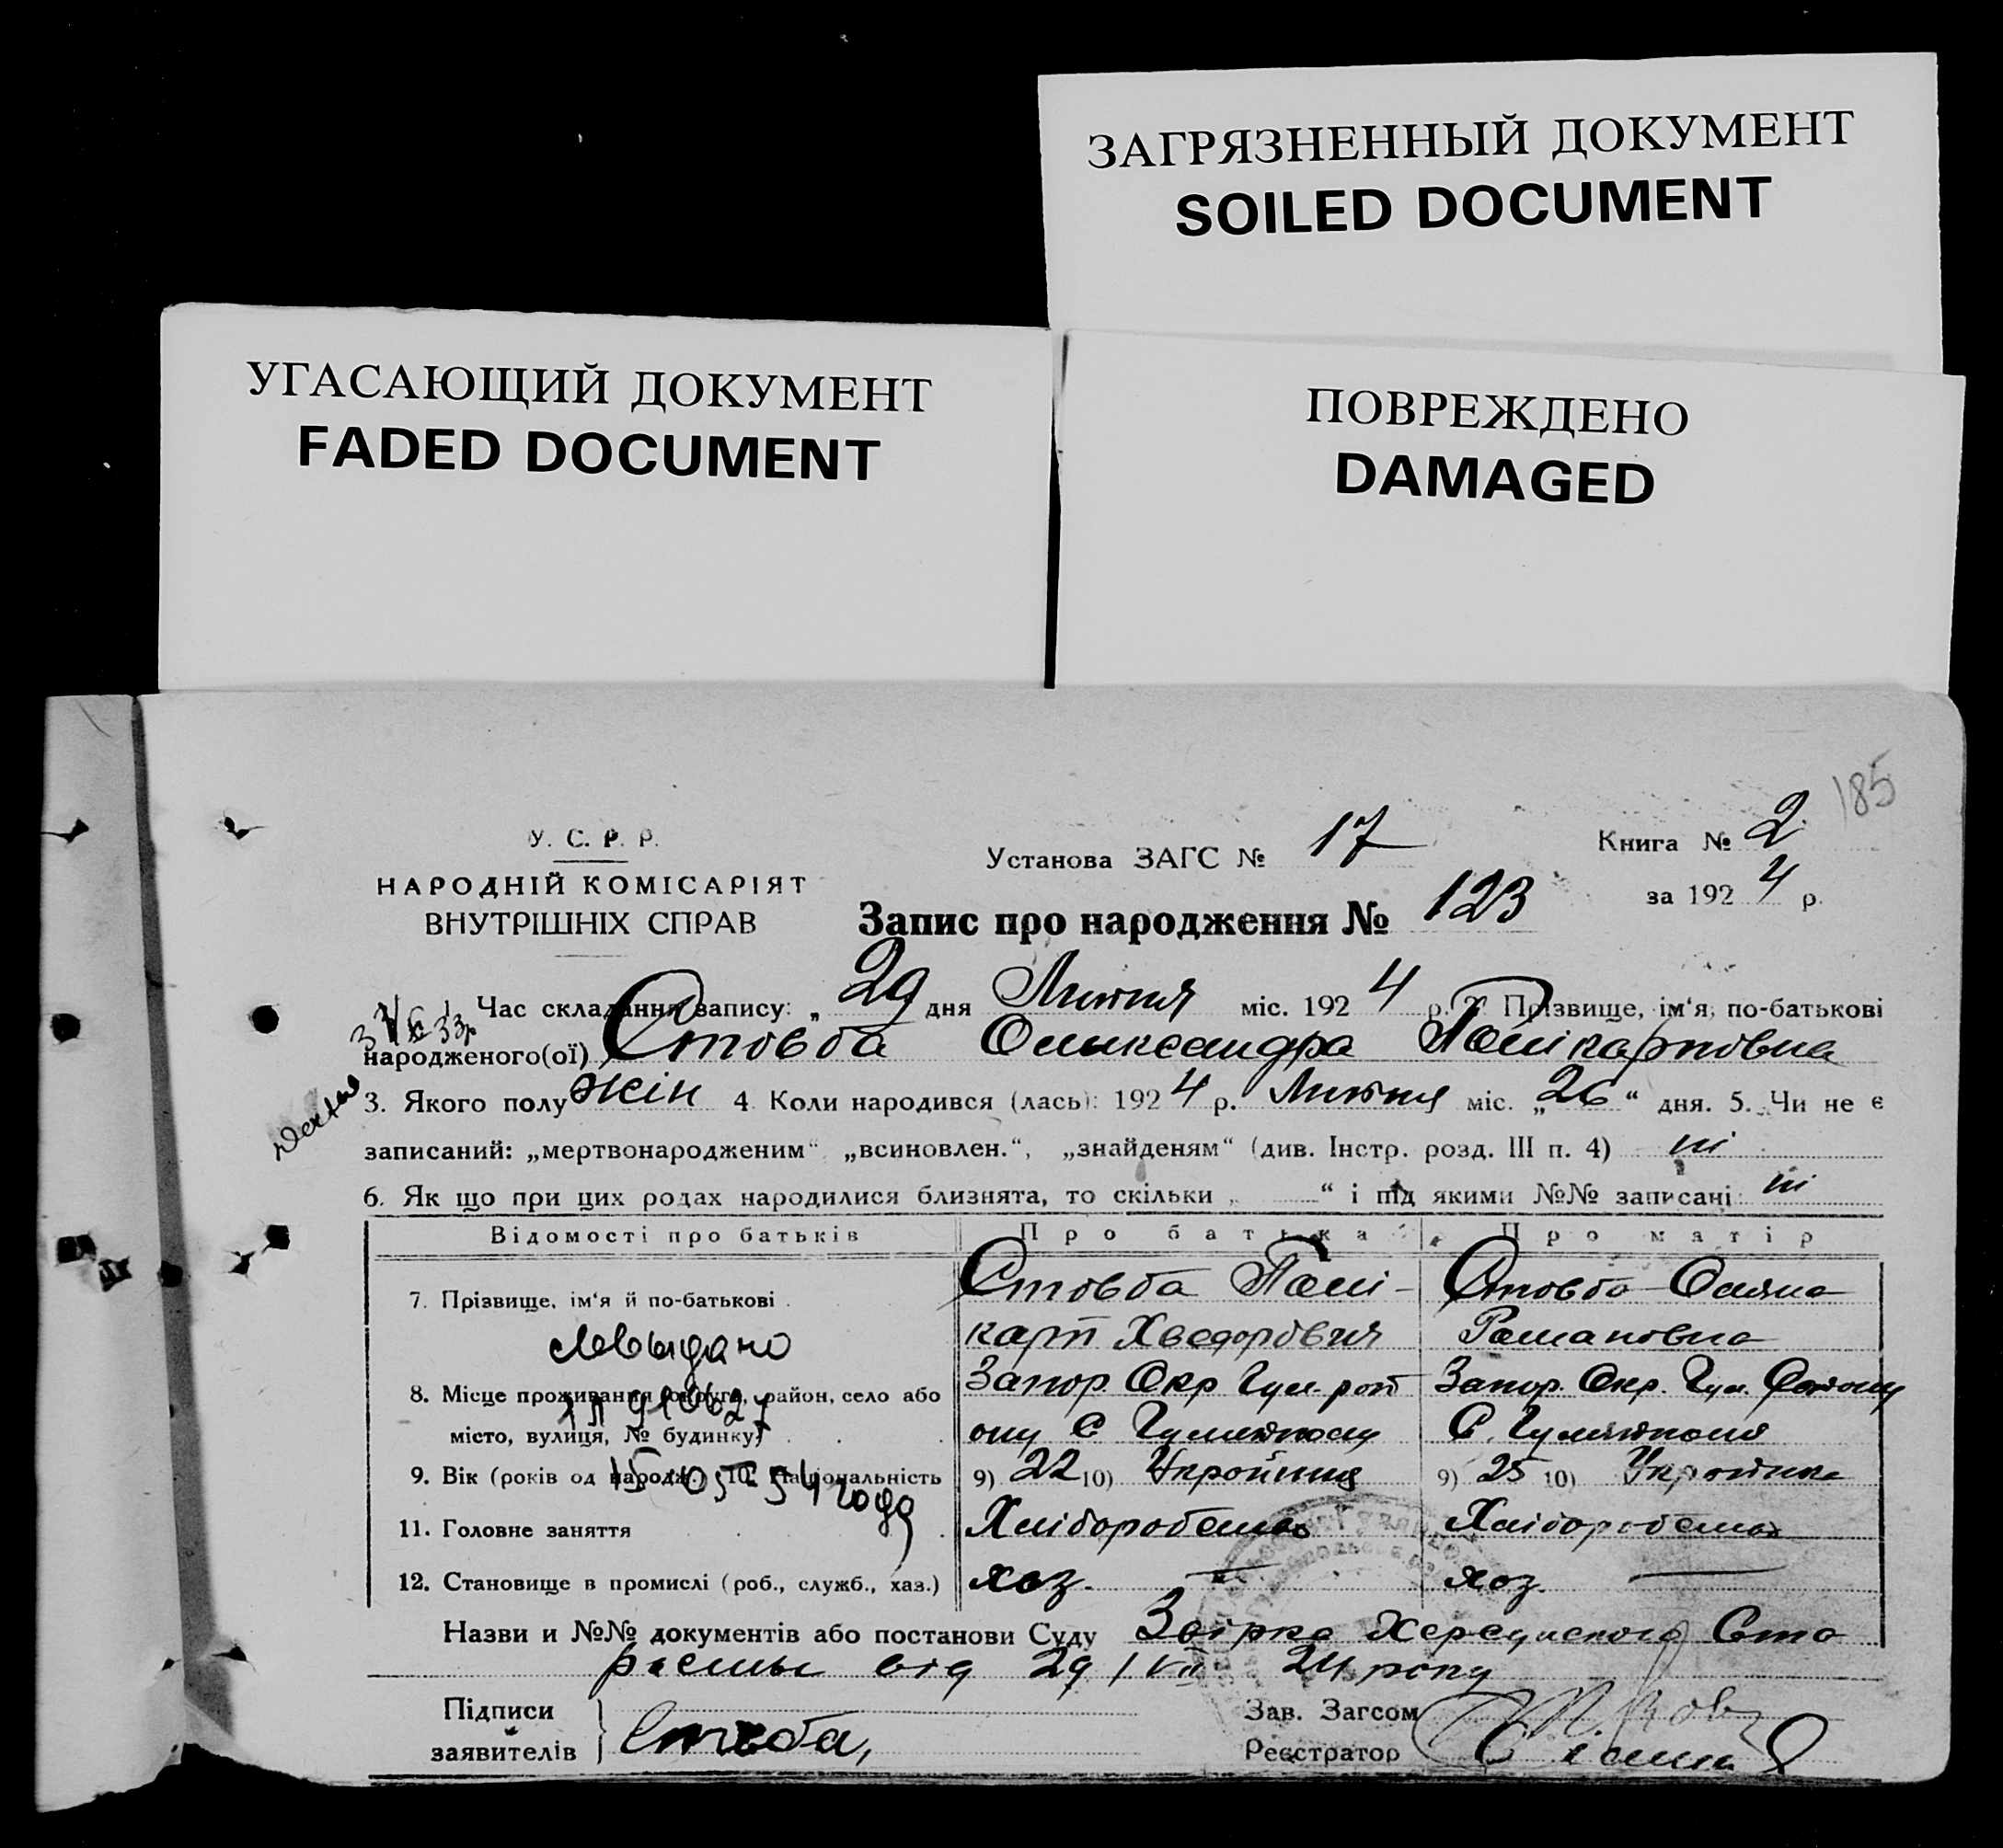 ЗАГРЯЗНЕННЫЙ ДОКУМЕНТ
SOILED DOCUMENT
УГАСАЮЩИЙ ДОКУМЕНТ
FADED DOCUMENT
ПОВРЕЖДЕНО
DAMAGED
185
У. С. Р. Р.
НАРОДНІЙ КОМІСАРІЯТ
ВНУТРІШНІХ СПРАВ
Установа ЗАГС № 17
Книга № 2
за 1924 р.
Запис про народження № 123
Час складання запису: „ 29 дня Липня міс. 1924 р. 2. Прізвище, ім‘я, по-батькові
народженого(ої) Стовба Олександра Полікарповна
3. Якого полу жін 4. Коли народився (лась): 1924 р. Липня міс. „26“ дня. 5. Чи не є
записаний: „мертвонародженим“ „всиновлен.“, „знайденям“ (див. Інстр. розд. III п. 4) ні
6. Як що при цих родах народилися близнята, то скільки „ “ і під якими №№ записані: ні
Відомості про батьків Про батька Про матір
7. Прізвище, ім‘я й по-батькові Стовба Полі- Стовба Оляна
карп Хведорович Романовна
8. Місце проживання (округа, район, село або Запор. Окр Гул. рай Запор. Окр. Гул. Району
місто, вулиця, № будинку) ону С С.
9. Вік (років од народж.) 10. Національність 9) 22 10) 9) 25 10) Українка
15 05 54 года
11. Головне заняття
12. Становище в промислі (роб., служб., хаз.) хаз. — хаз. —
Назви и №№ документів або постанови Суду
від 29/VII 24 року
Підписи
заявителів Стовба,
Зав. Загсом
Реєстратор